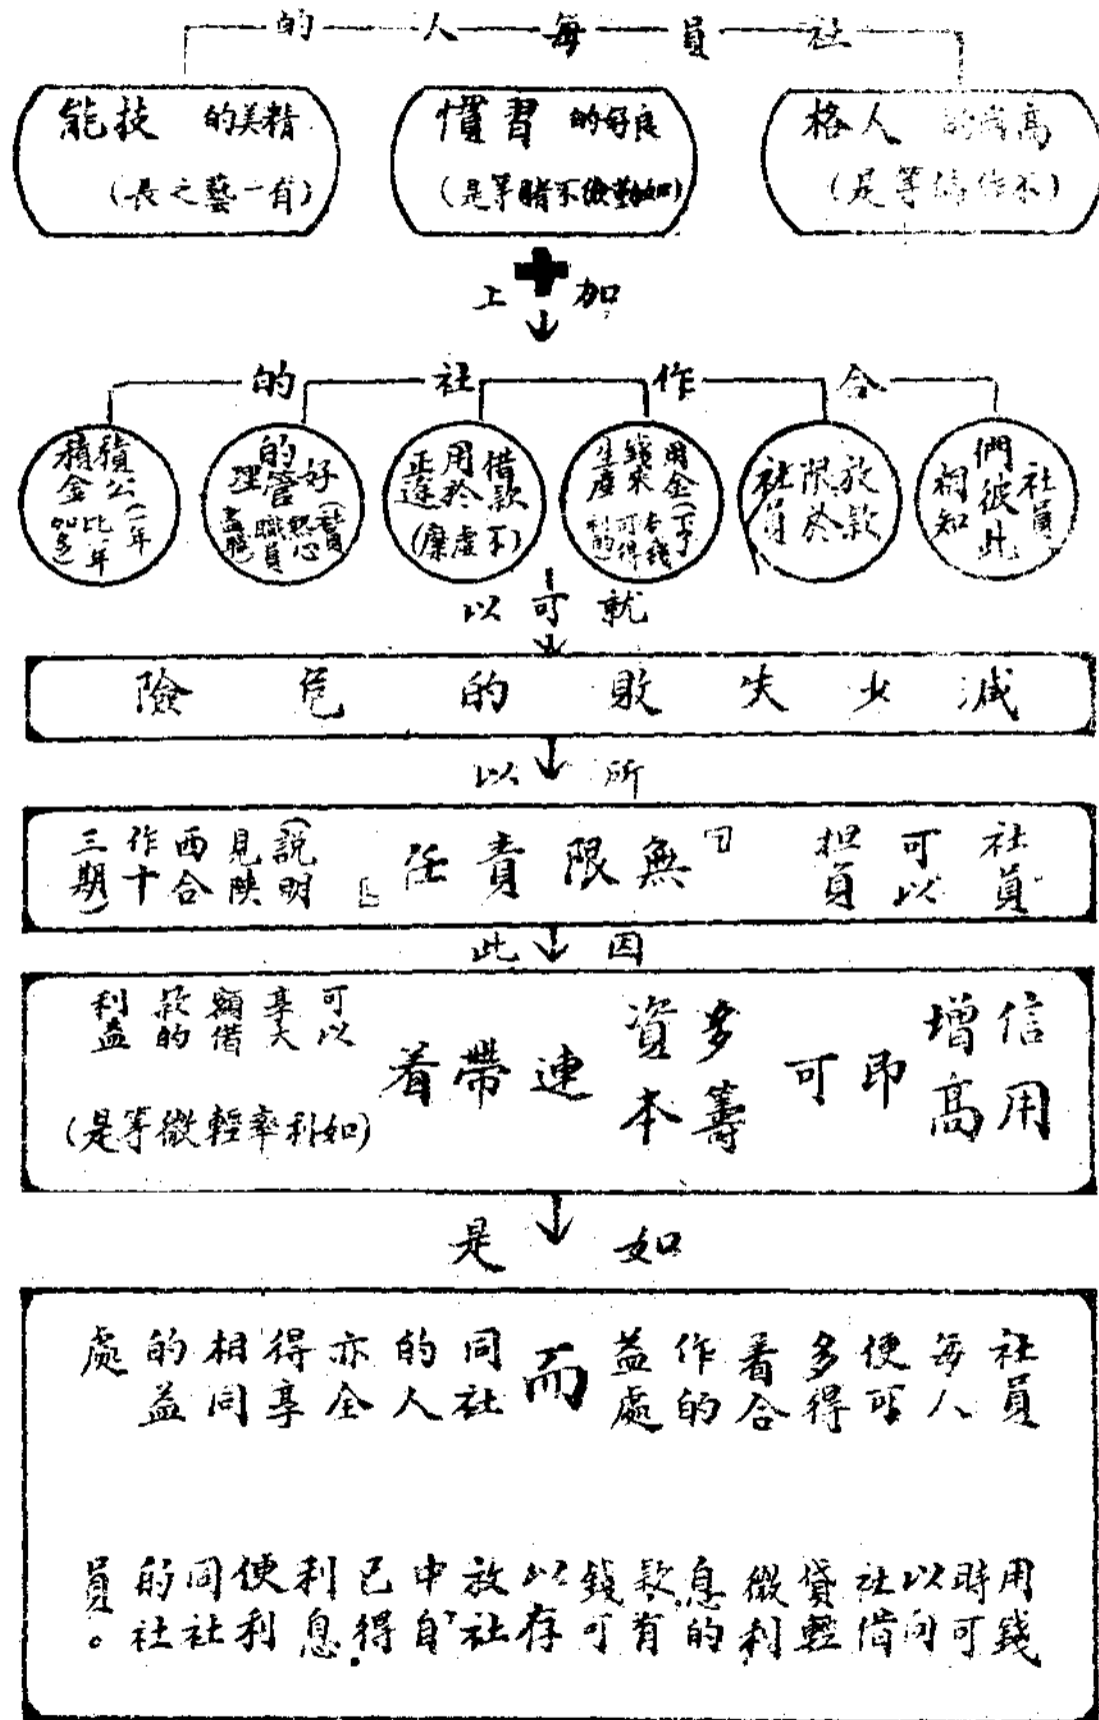 社員每人的
高尚的人格
(不作偽等是)
良好的習慣
(如勤儉不賭等是)
精美的技能
(有一藝之長)
加上
合作社的
社員們彼此相知
放款限於社員
用金錢來生產
借款用於正途
(不虛糜)
好的管理
(社員熱心職員盡職)
公積金
(一年比一年加多)
就可以
減少失敗的危險
所以
社員可以担負「無限責任」
(說明見陝西合作十三期)
因此
信用增高即可多籌資本連帶着可以享大額借款的利益
(如利率輕微等是)
如是
社員每人便可多得着合作的益處而同社的人亦全得享相同的益處
用錢時可以向社借貸輕微利息的款,有錢可以存放社中,自己得利息.便利同社的社員。